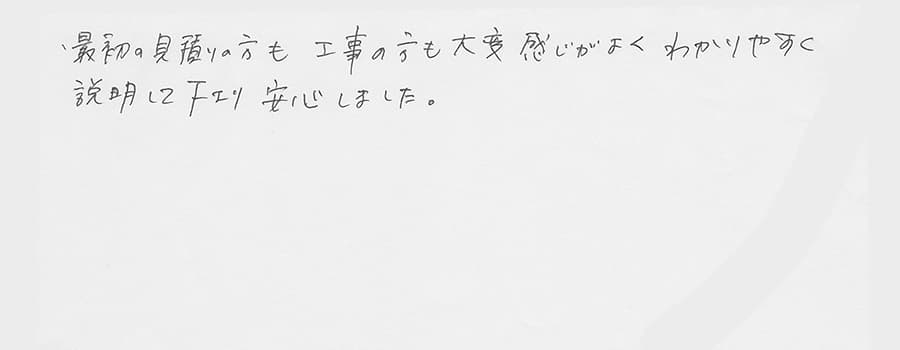 ・最初の見積りの方も 工事の方も大変 感じがよく わかりやすく
説明して下さり 安心しました。